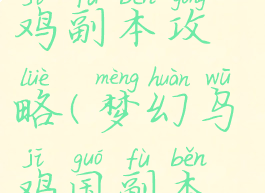 jī fù běn gōng
鸡副本攻
lüè mèng huàn wū
略(梦幻乌
jī guó fù běn
鸡国副本